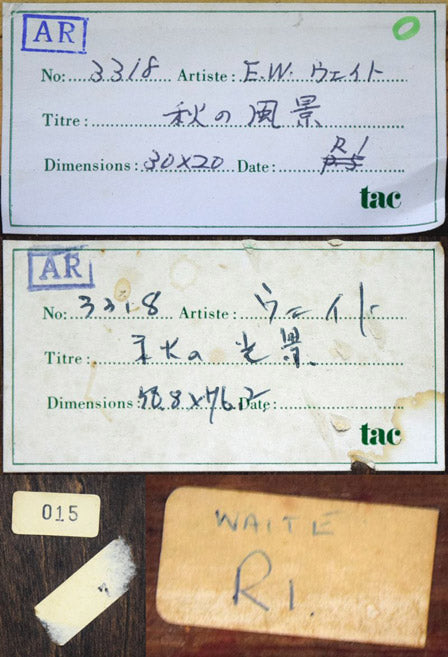 AR
No: 3318 Artiste: E.W. ウェイト
Titre: 秋の風景
R1
Dimensions: 30×20 Date: P5
tac
AR
No: 3318 Artiste: ウェイト
Titre: 秋の光景
Dimensions: 50.8×76.2 Date:
tac
015
WAITE
R1.